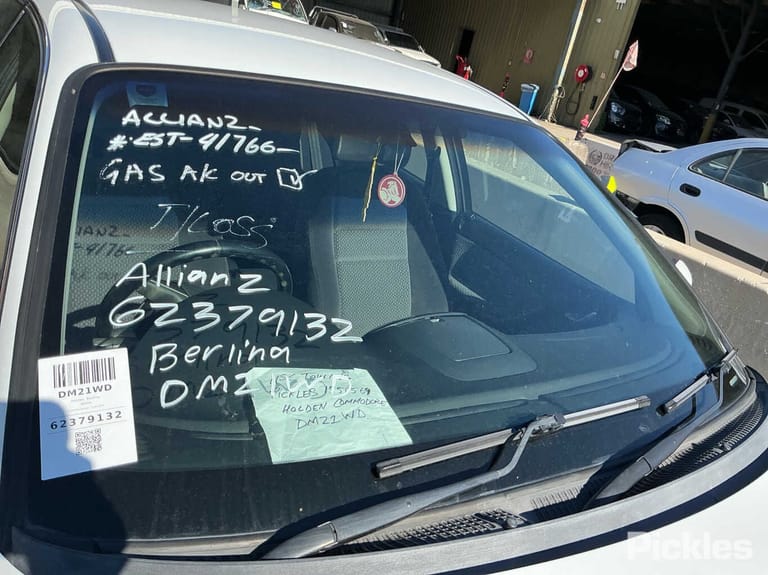 ALLIANZ-
#EST-41766-
GAS A/C OUT
T/LOSS
Allianz
62379132
Berlina
DM21WD
DM21WD
62379132
PICKLES
HOLDEN COMMODORE
DM21WD
Pickles